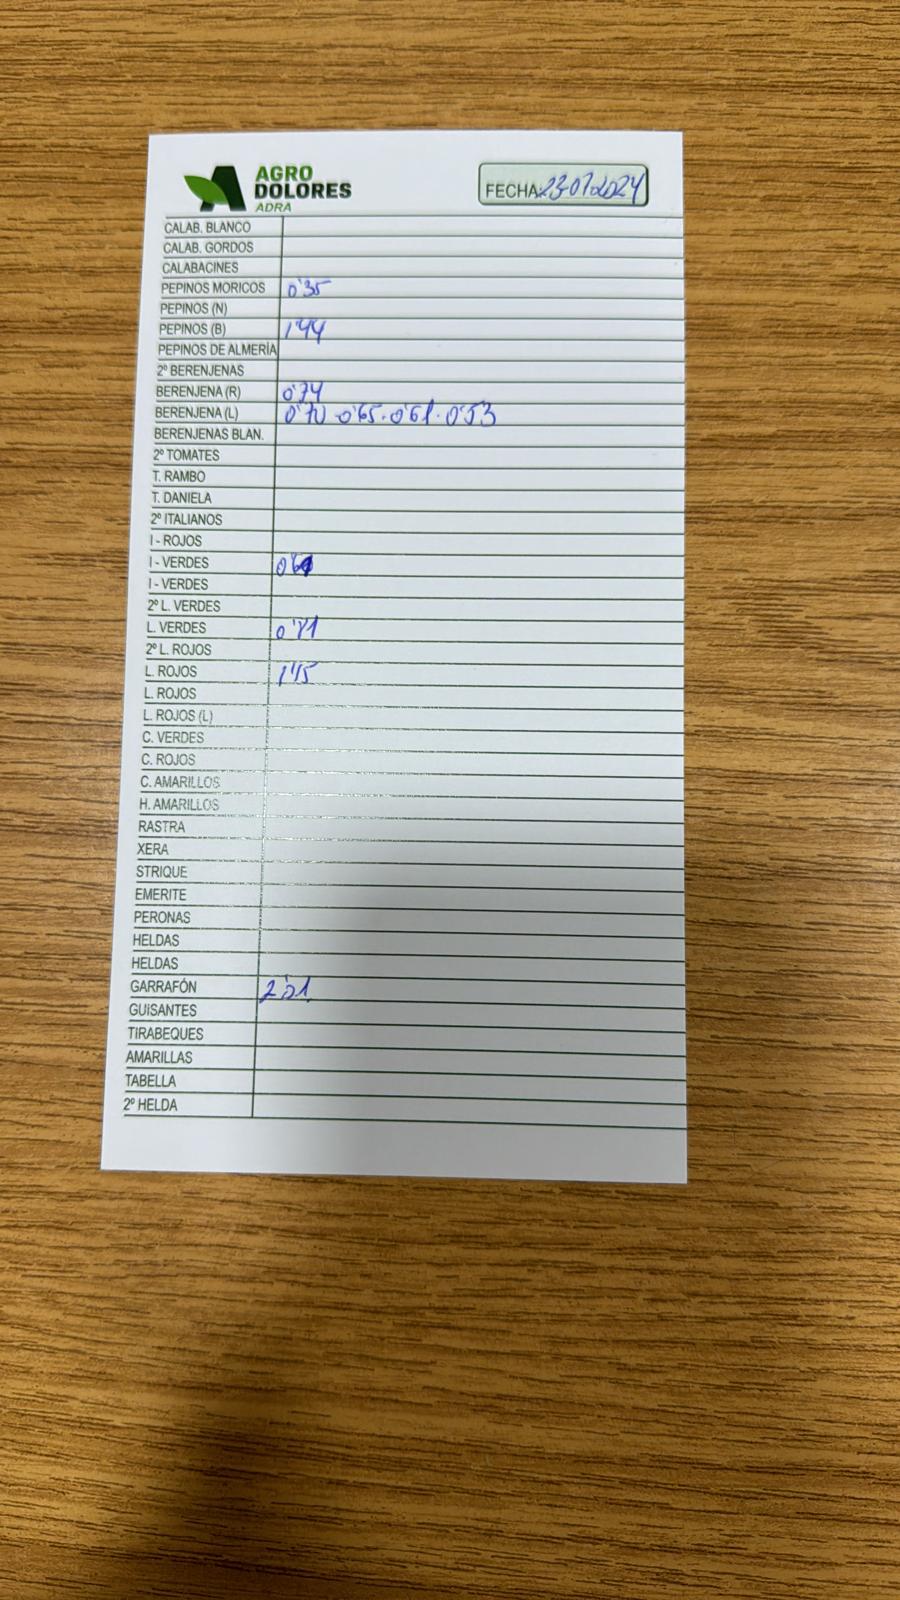 AGRO
DOLORES
ADRA
FECHA: 23-07-2024
CALAB. BLANCO
CALAB. GORDOS
CALABACINES
PEPINOS MORICOS 0'35
PEPINOS (N)
PEPINOS (B) 1'44
PEPINOS DE ALMERÍA
2º BERENJENAS
BERENJENA (R) 0'74
BERENJENA (L) 0'70 - 0'65 - 0'61 - 0'53
BERENJENAS BLAN.
2º TOMATES
T. RAMBO
T. DANIELA
2º ITALIANOS
I - ROJOS
I - VERDES
I - VERDES
2º L. VERDES
L. VERDES
2º L. ROJOS
L. ROJOS 1'15
L. ROJOS
L. ROJOS (L)
C. VERDES
C. ROJOS
C. AMARILLOS
H. AMARILLOS
RASTRA
XERA
STRIQUE
EMERITE
PERONAS
HELDAS
HELDAS
GARRAFÓN 2'01
GUISANTES
TIRABEQUES
AMARILLAS
TABELLA
2º HELDA